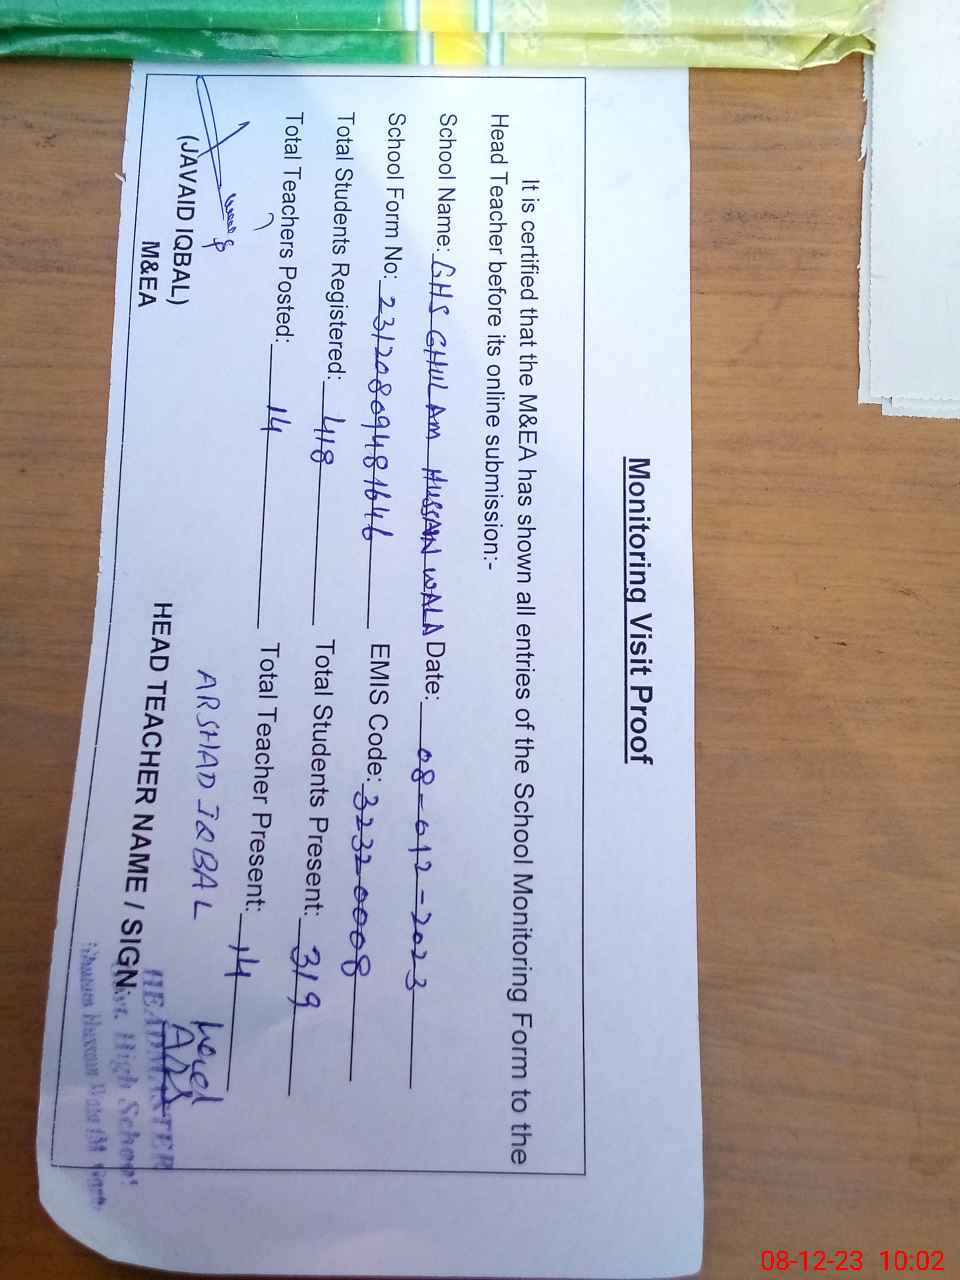 Monitoring Visit Proof
It is certified that the M&EA has shown all entries of the School Monitoring Form to the
Head Teacher before its online submission:-
School Name: GHS GHULAM HUSSAN WALA Date: 08-012-2023
School Form No: 23120809481646 EMIS Code: 32320008
Total Students Registered: 418 Total Students Present: 319
Total Teachers Posted: 14 Total Teacher Present: 14
ARSHAD IQBAL
(JAVAID IQBAL)
M&EA
HEAD TEACHER NAME / SIGN:
HEADMASTER
Govt. High School
08-12-23 10:02